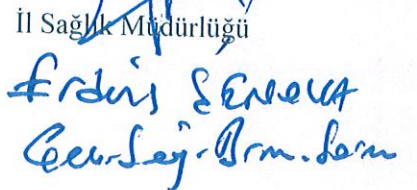 İl Sağlık Müdürlüğü
Erdinç ŞENOVA
Çev. Sağ. Brm. Sor.